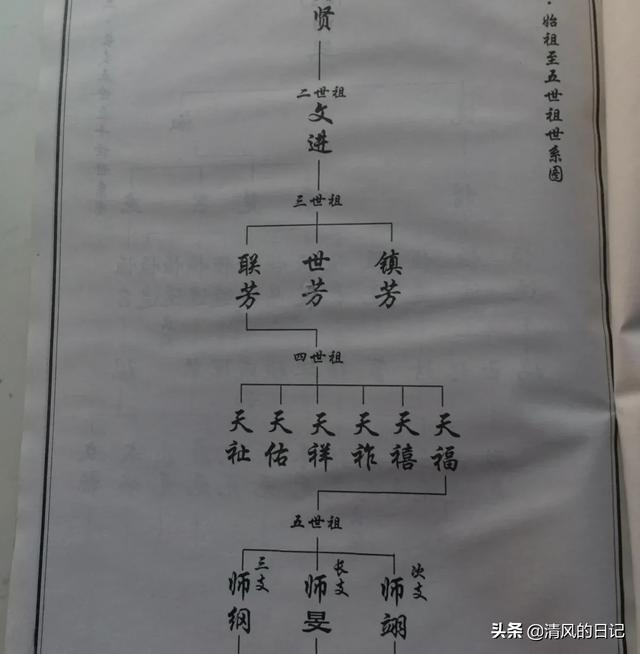 ·始祖至五世祖世系图
贤
二世祖
文进
三世祖
联芳 世芳 镇芳
四世祖
天祉 天佑 天祥 天祚 天禧 天福
五世祖
三支 长支 次支
师纲 师旻 师翊
头条 @清风的日记